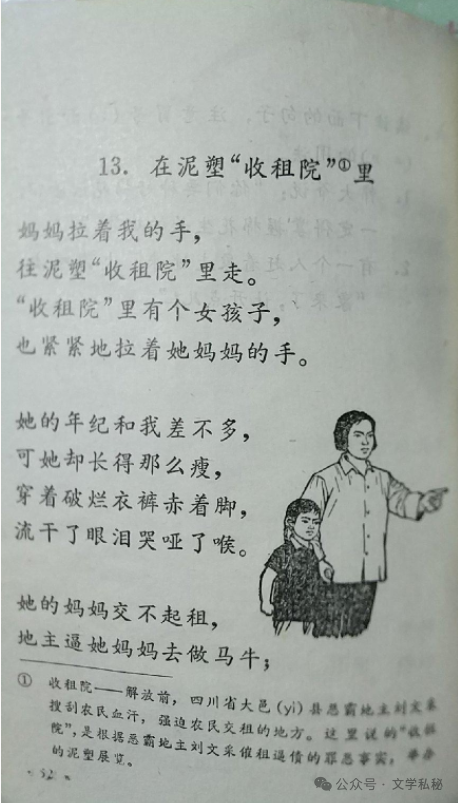 13. 在泥塑“收租院”①里
妈妈拉着我的手，
往泥塑“收租院”里走。
“收租院”里有个女孩子，
也紧紧地拉着她妈妈的手。
她的年纪和我差不多，
可她却长得那么瘦，
穿着破烂衣裤赤着脚，
流干了眼泪哭哑了喉。
她的妈妈交不起租，
地主逼她妈妈去做马牛；
① 收租院——解放前，四川省大邑（yì）县恶霸地主刘文采
搜刮农民血汗，强迫农民交租的地方。这里说的“收租
院”，是根据恶霸地主刘文采催租逼债的罪恶事实，举办
的泥塑展览。
52
公众号·文学私秘